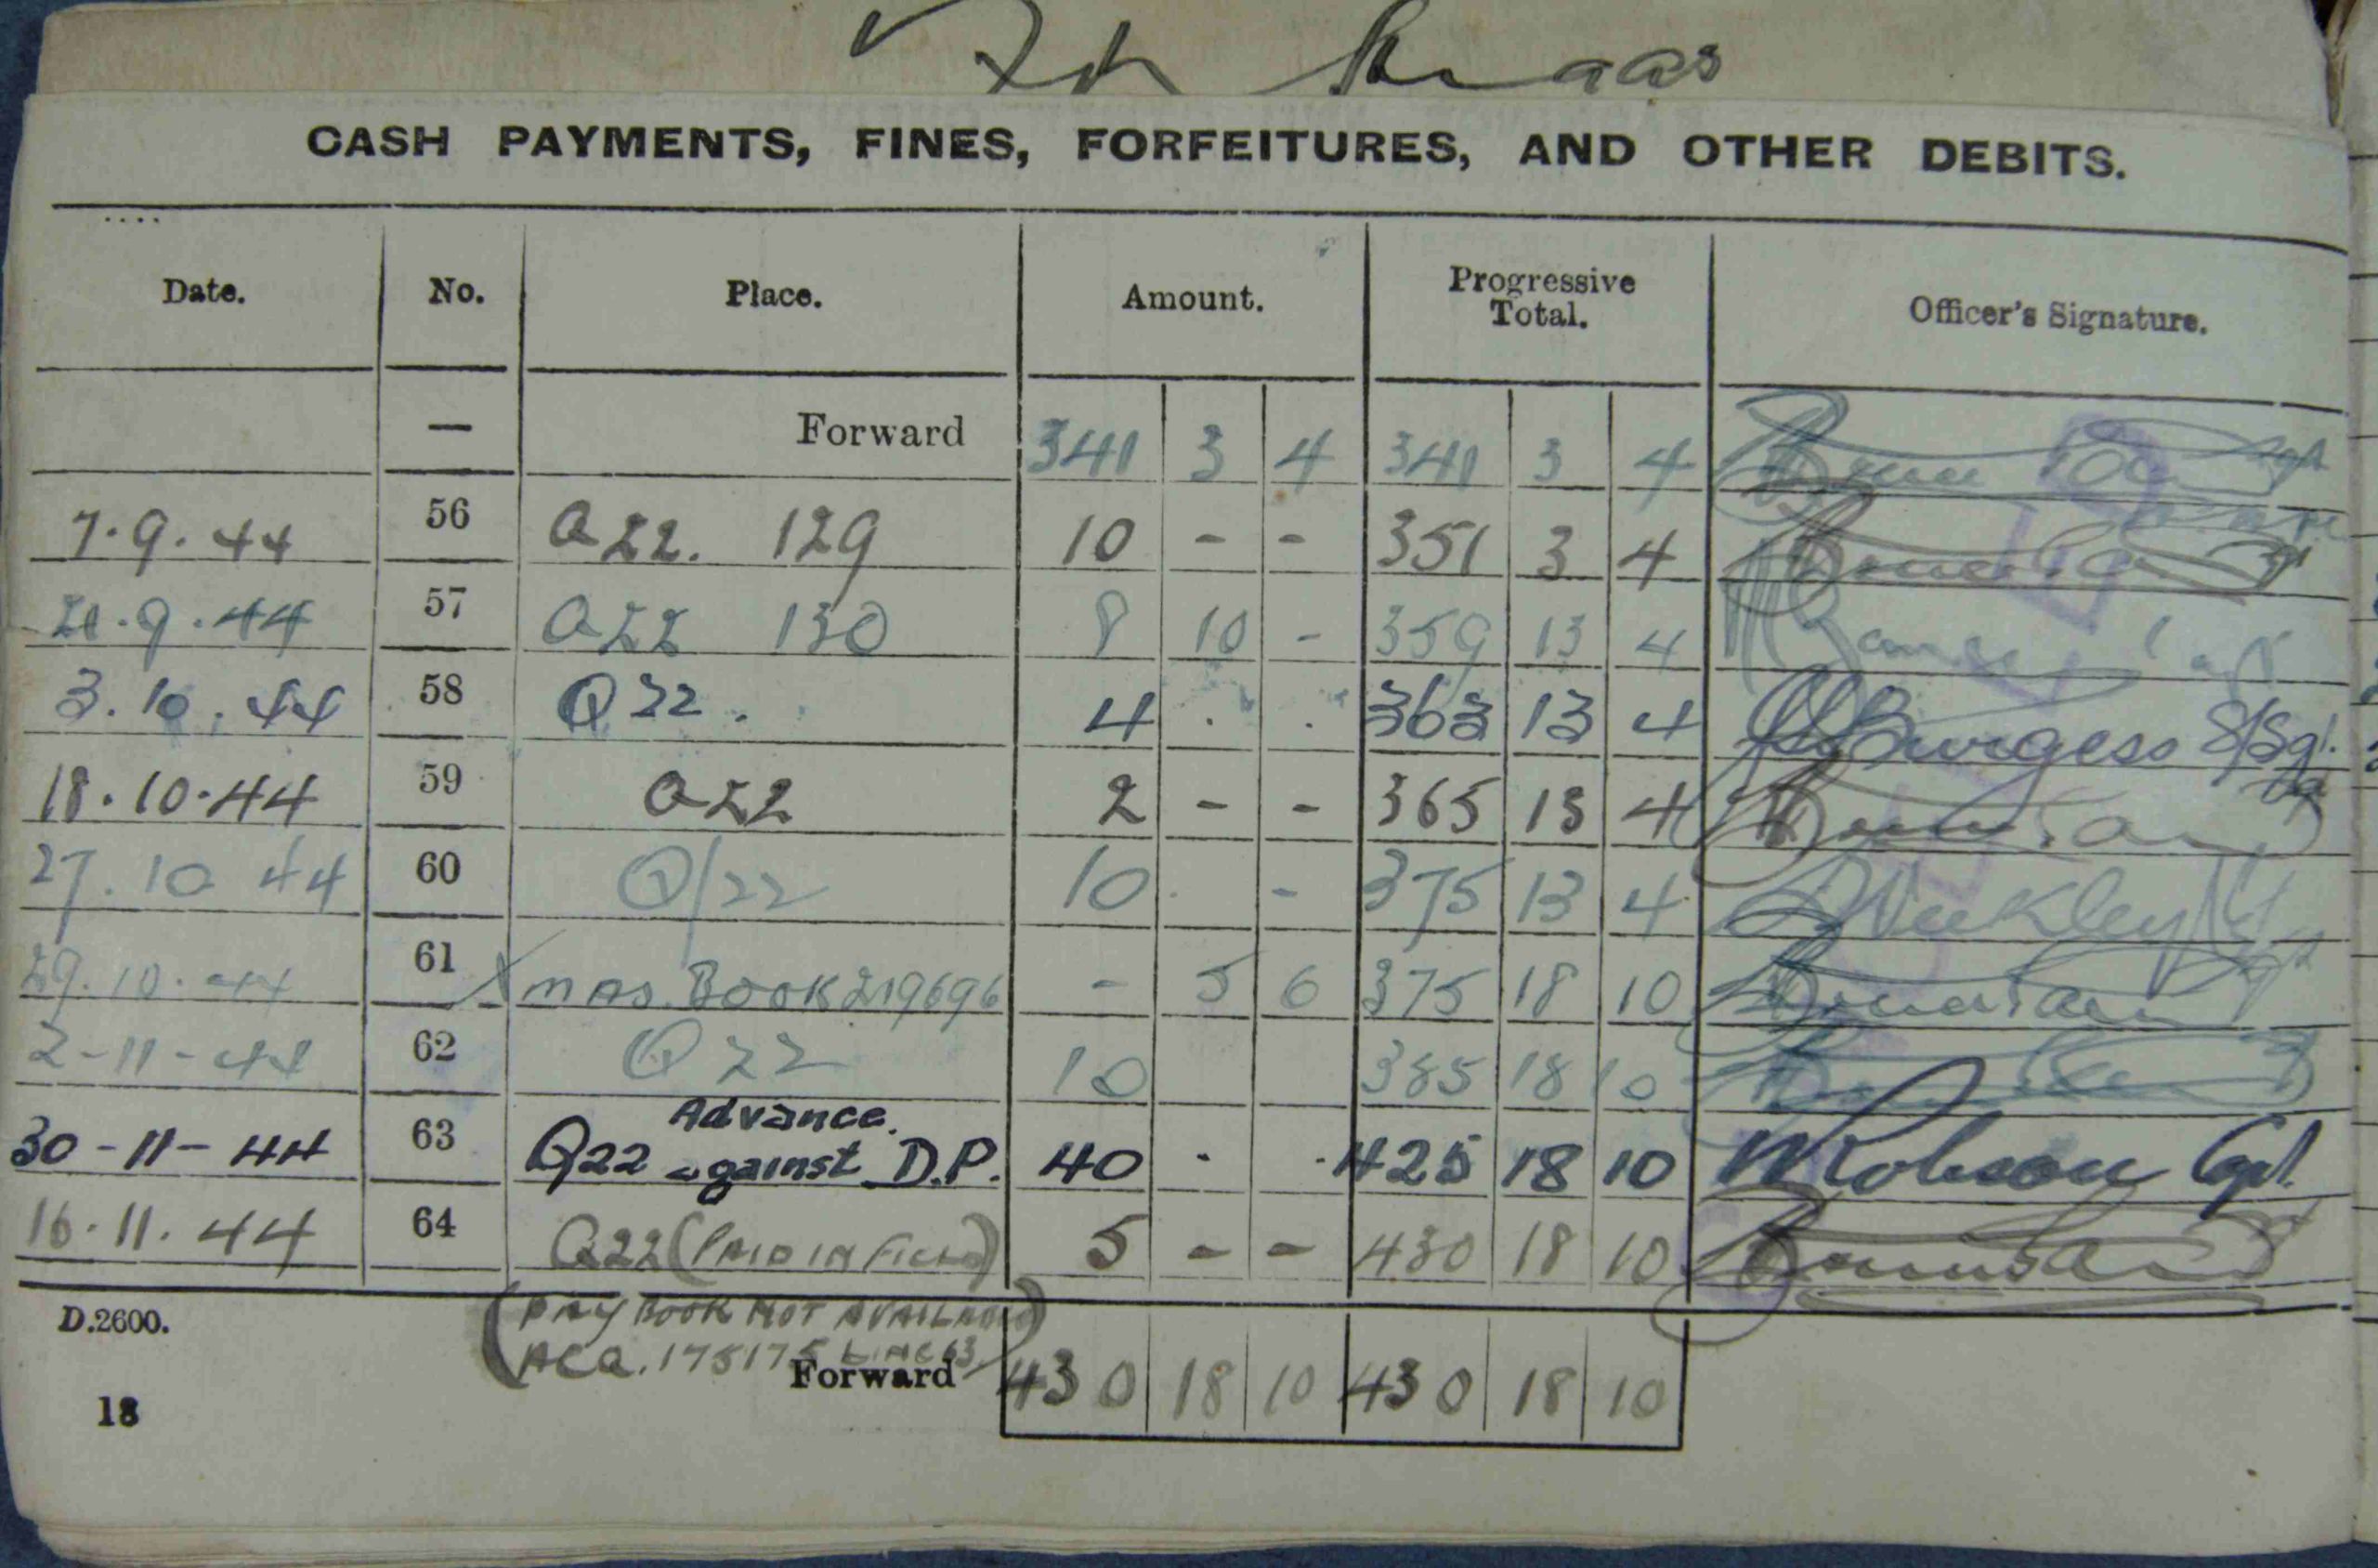 CASH PAYMENTS, FINES, FORFEITURES, AND OTHER DEBITS.
Date. No. Place. Amount. Progressive Total. Officer's Signature.
— Forward 341 3 4 341 3 4
7.9.44 56 Q22. 129 10 - - 351 3 4
21.9.44 57 Q22 130 8 10 - 359 13 4
3.10.44 58 Q22. 4 . . 363 13 4 Burgess S/Sgt.
18.10.44 59 Q22 2 - - 365 13 4
27.10 44 60 Q/22 10 - 375 13 4
29.10.44 61 Xmas. Book 219696 - 5 6 375 18 10
2-11-44 62 Q22 10 385 18 10
30-11-44 63 Q22 Advance. against D.P. 40 . . 425 18 10 Robson Cpl.
16.11.44 64 Q22 (PAID IN FIELD) 5 - - 430 18 10
D.2600. (PAY BOOK NOT AVAILABLE
ACQ. 175175 LINE 63)
Forward 430 18 10 430 18 10
18